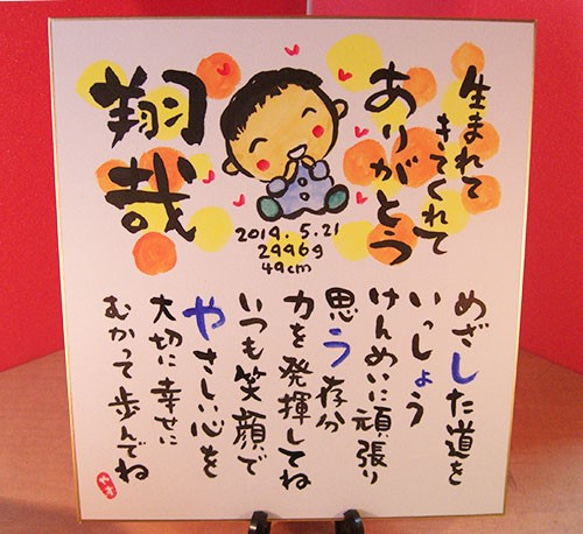 生まれて
きてくれて
ありがとう
翔哉
2014.5.21
2996g
49cm
めざした道を
いっしょう
けんめいに頑張り
思う存分
力を発揮してね
いつも笑顔で
やさしい心を
大切に幸せに
むかって歩んでね